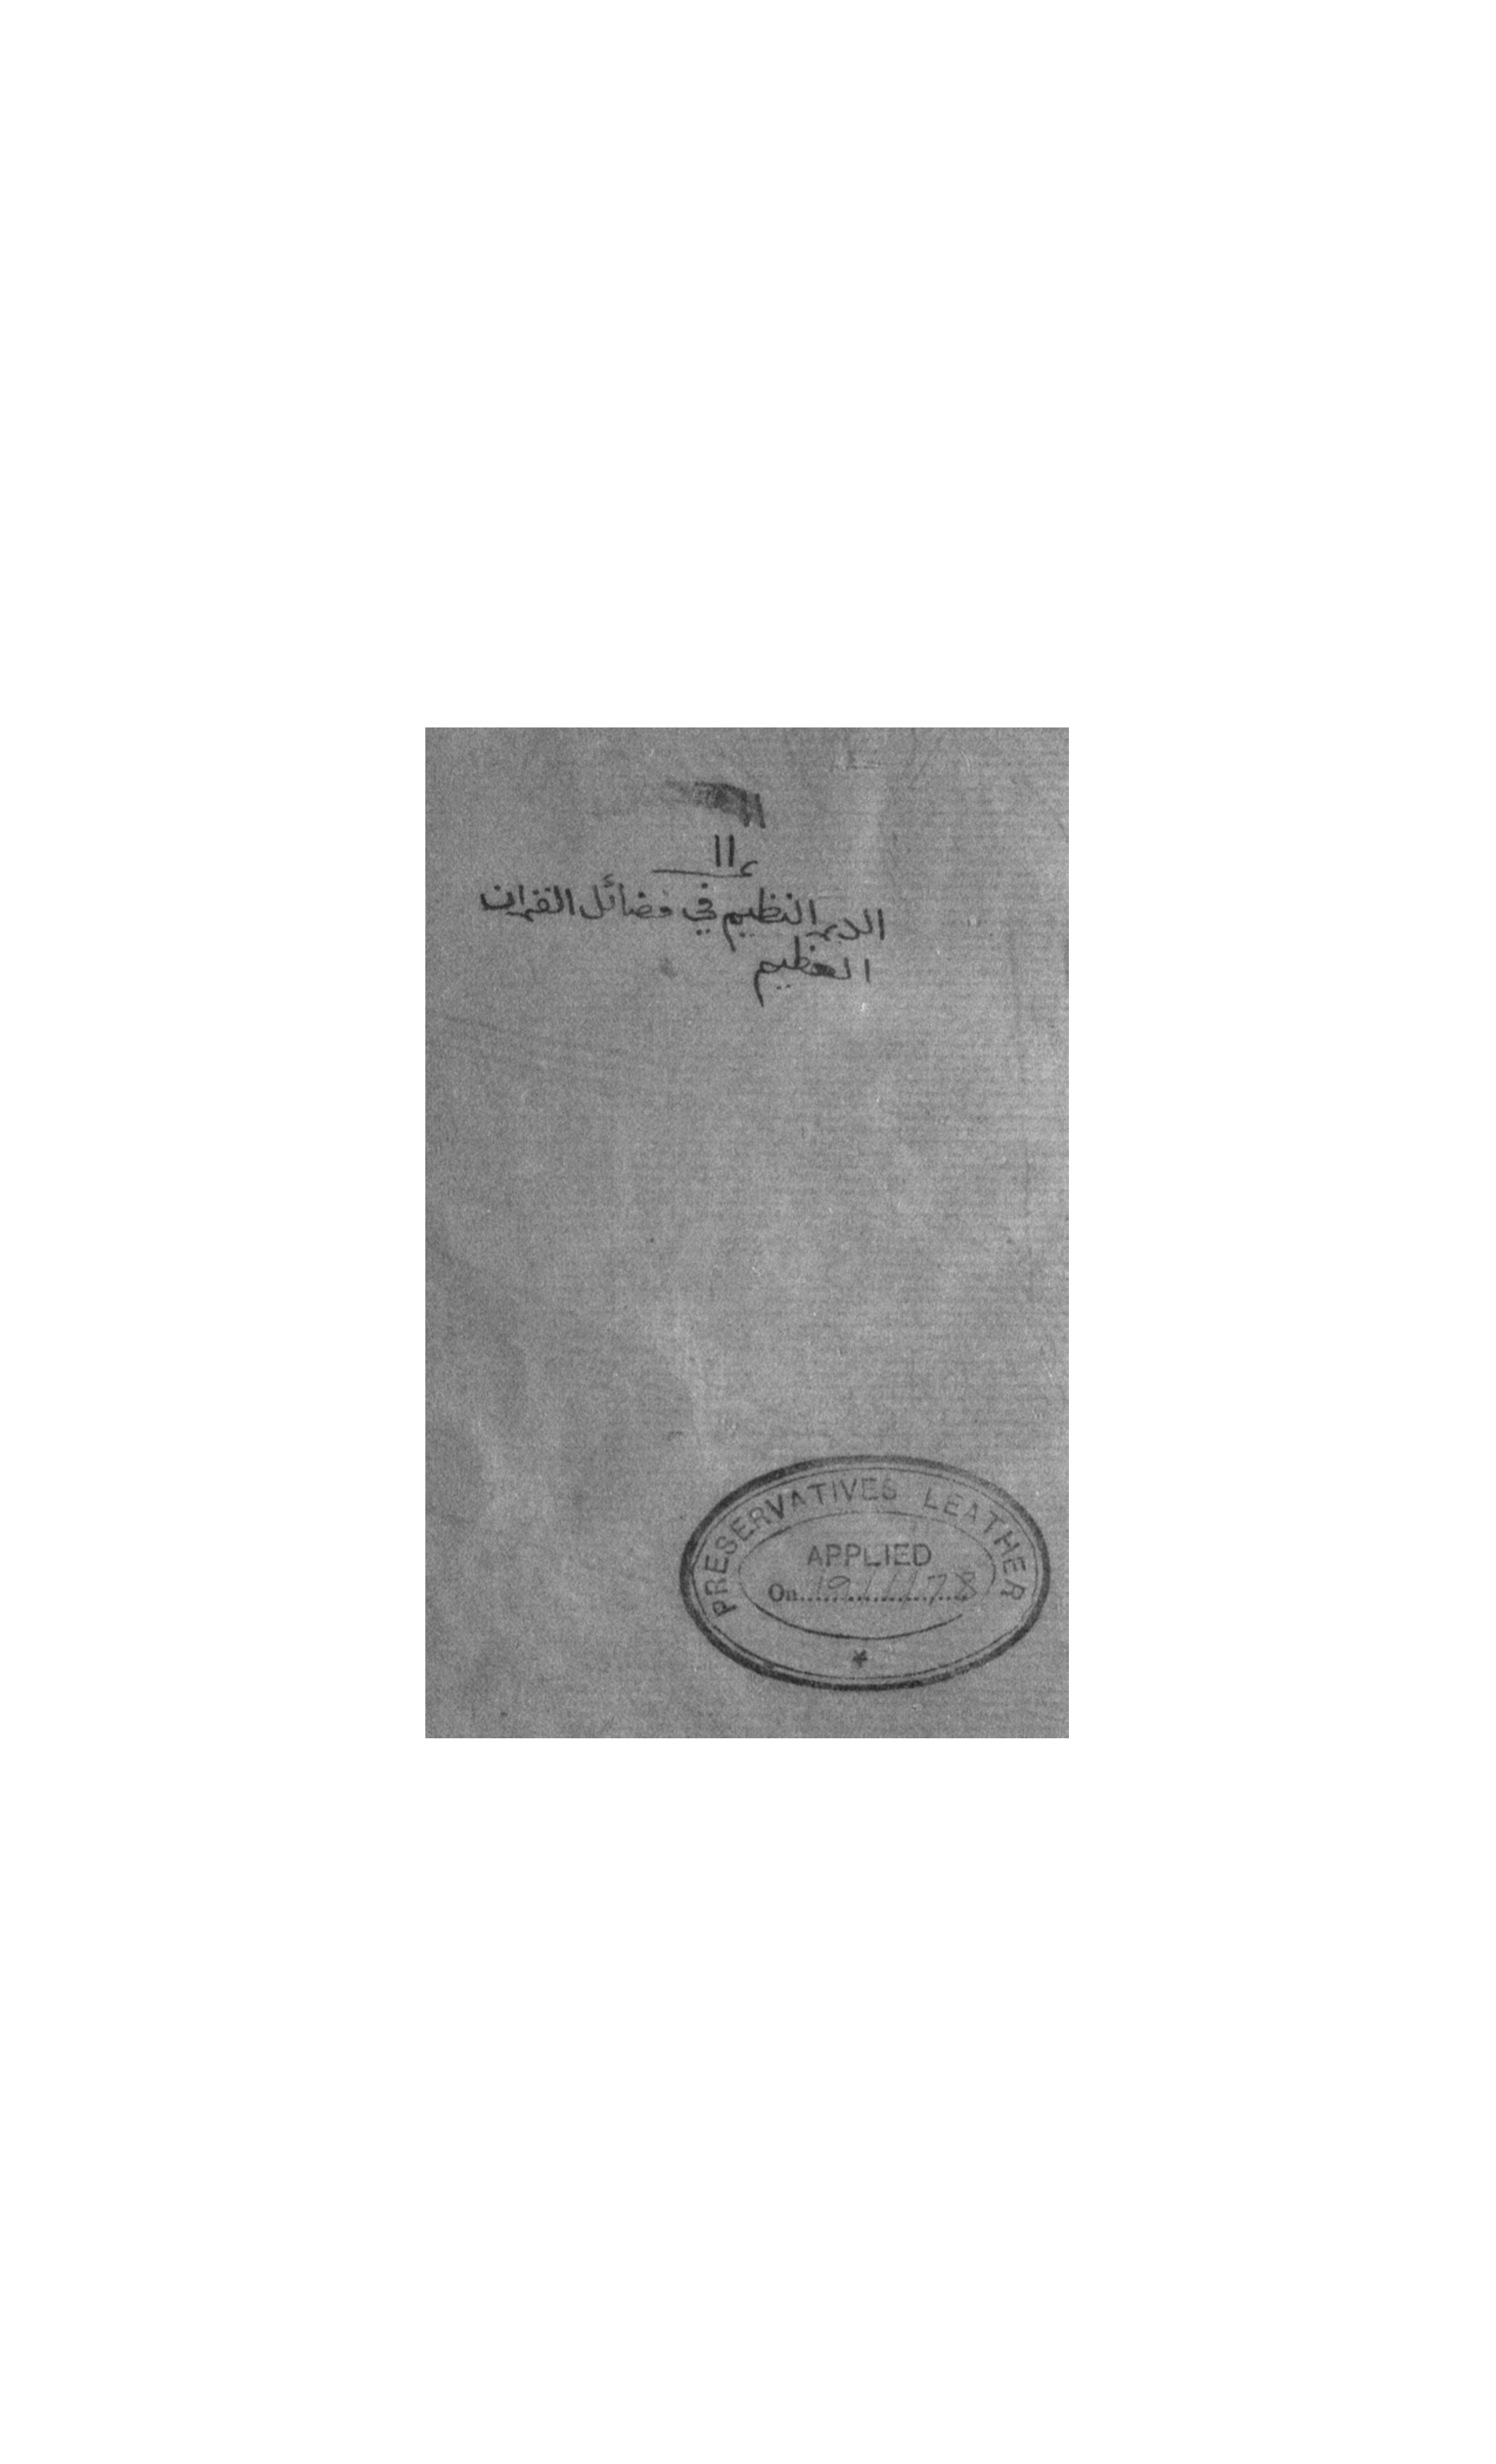 ١١
الدر النظيم في فضائل القران
العظيم
PRESERVATIVES LEATHER
APPLIED
On 19/1/78
*